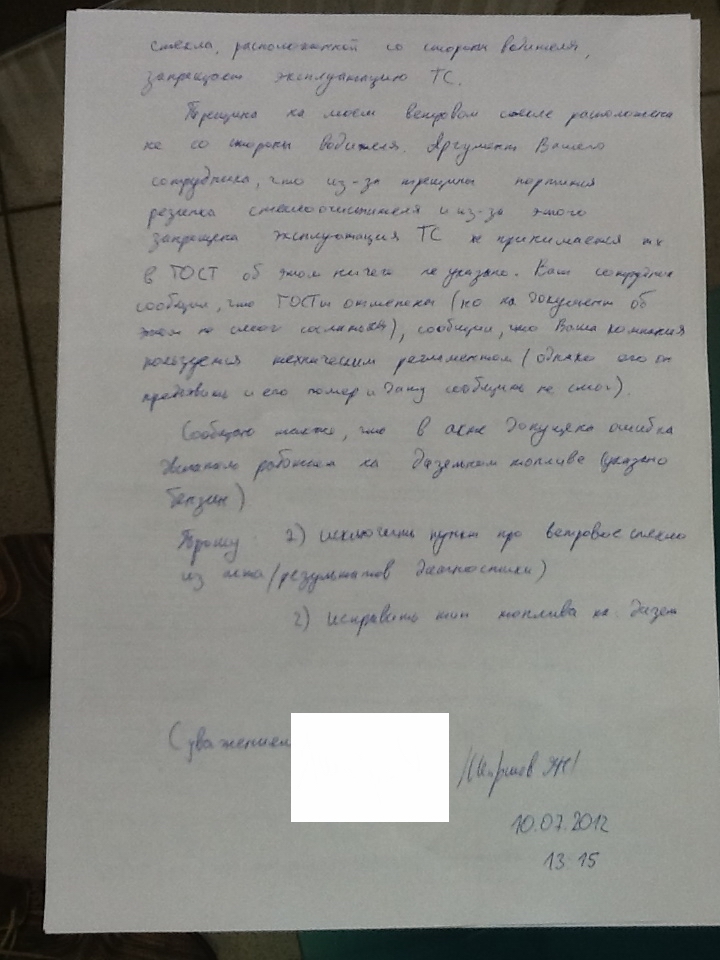 стекла, расположенной со стороны водителя,
запрещают эксплуатацию ТС.
Трещина на моем ветровом стекле расположена
не со стороны водителя. Аргумент Вашего
сотрудника, что из-за трещины портится
резинка стеклоочистителя и из-за этого
запрещена эксплуатация ТС не принимается тк
в ГОСТ об этом ничего не указано. Ваш сотрудник
сообщил, что ГОСТы отменены (но на документ об
этом не смог сослаться), сообщил, что Ваша компания
пользуется техническим регламентом (однако его он
предъявить и его номер и дату сообщить не смог).
Сообщаю также, что в акте допущена ошибка
работает на дизельном топливе (указано
бензин)
Прошу: 1) исключить пункт про ветровое стекло
из акта/результатов диагностики)
2) исправить тип топлива на дизел
С уважением
10.07.2012
13:15